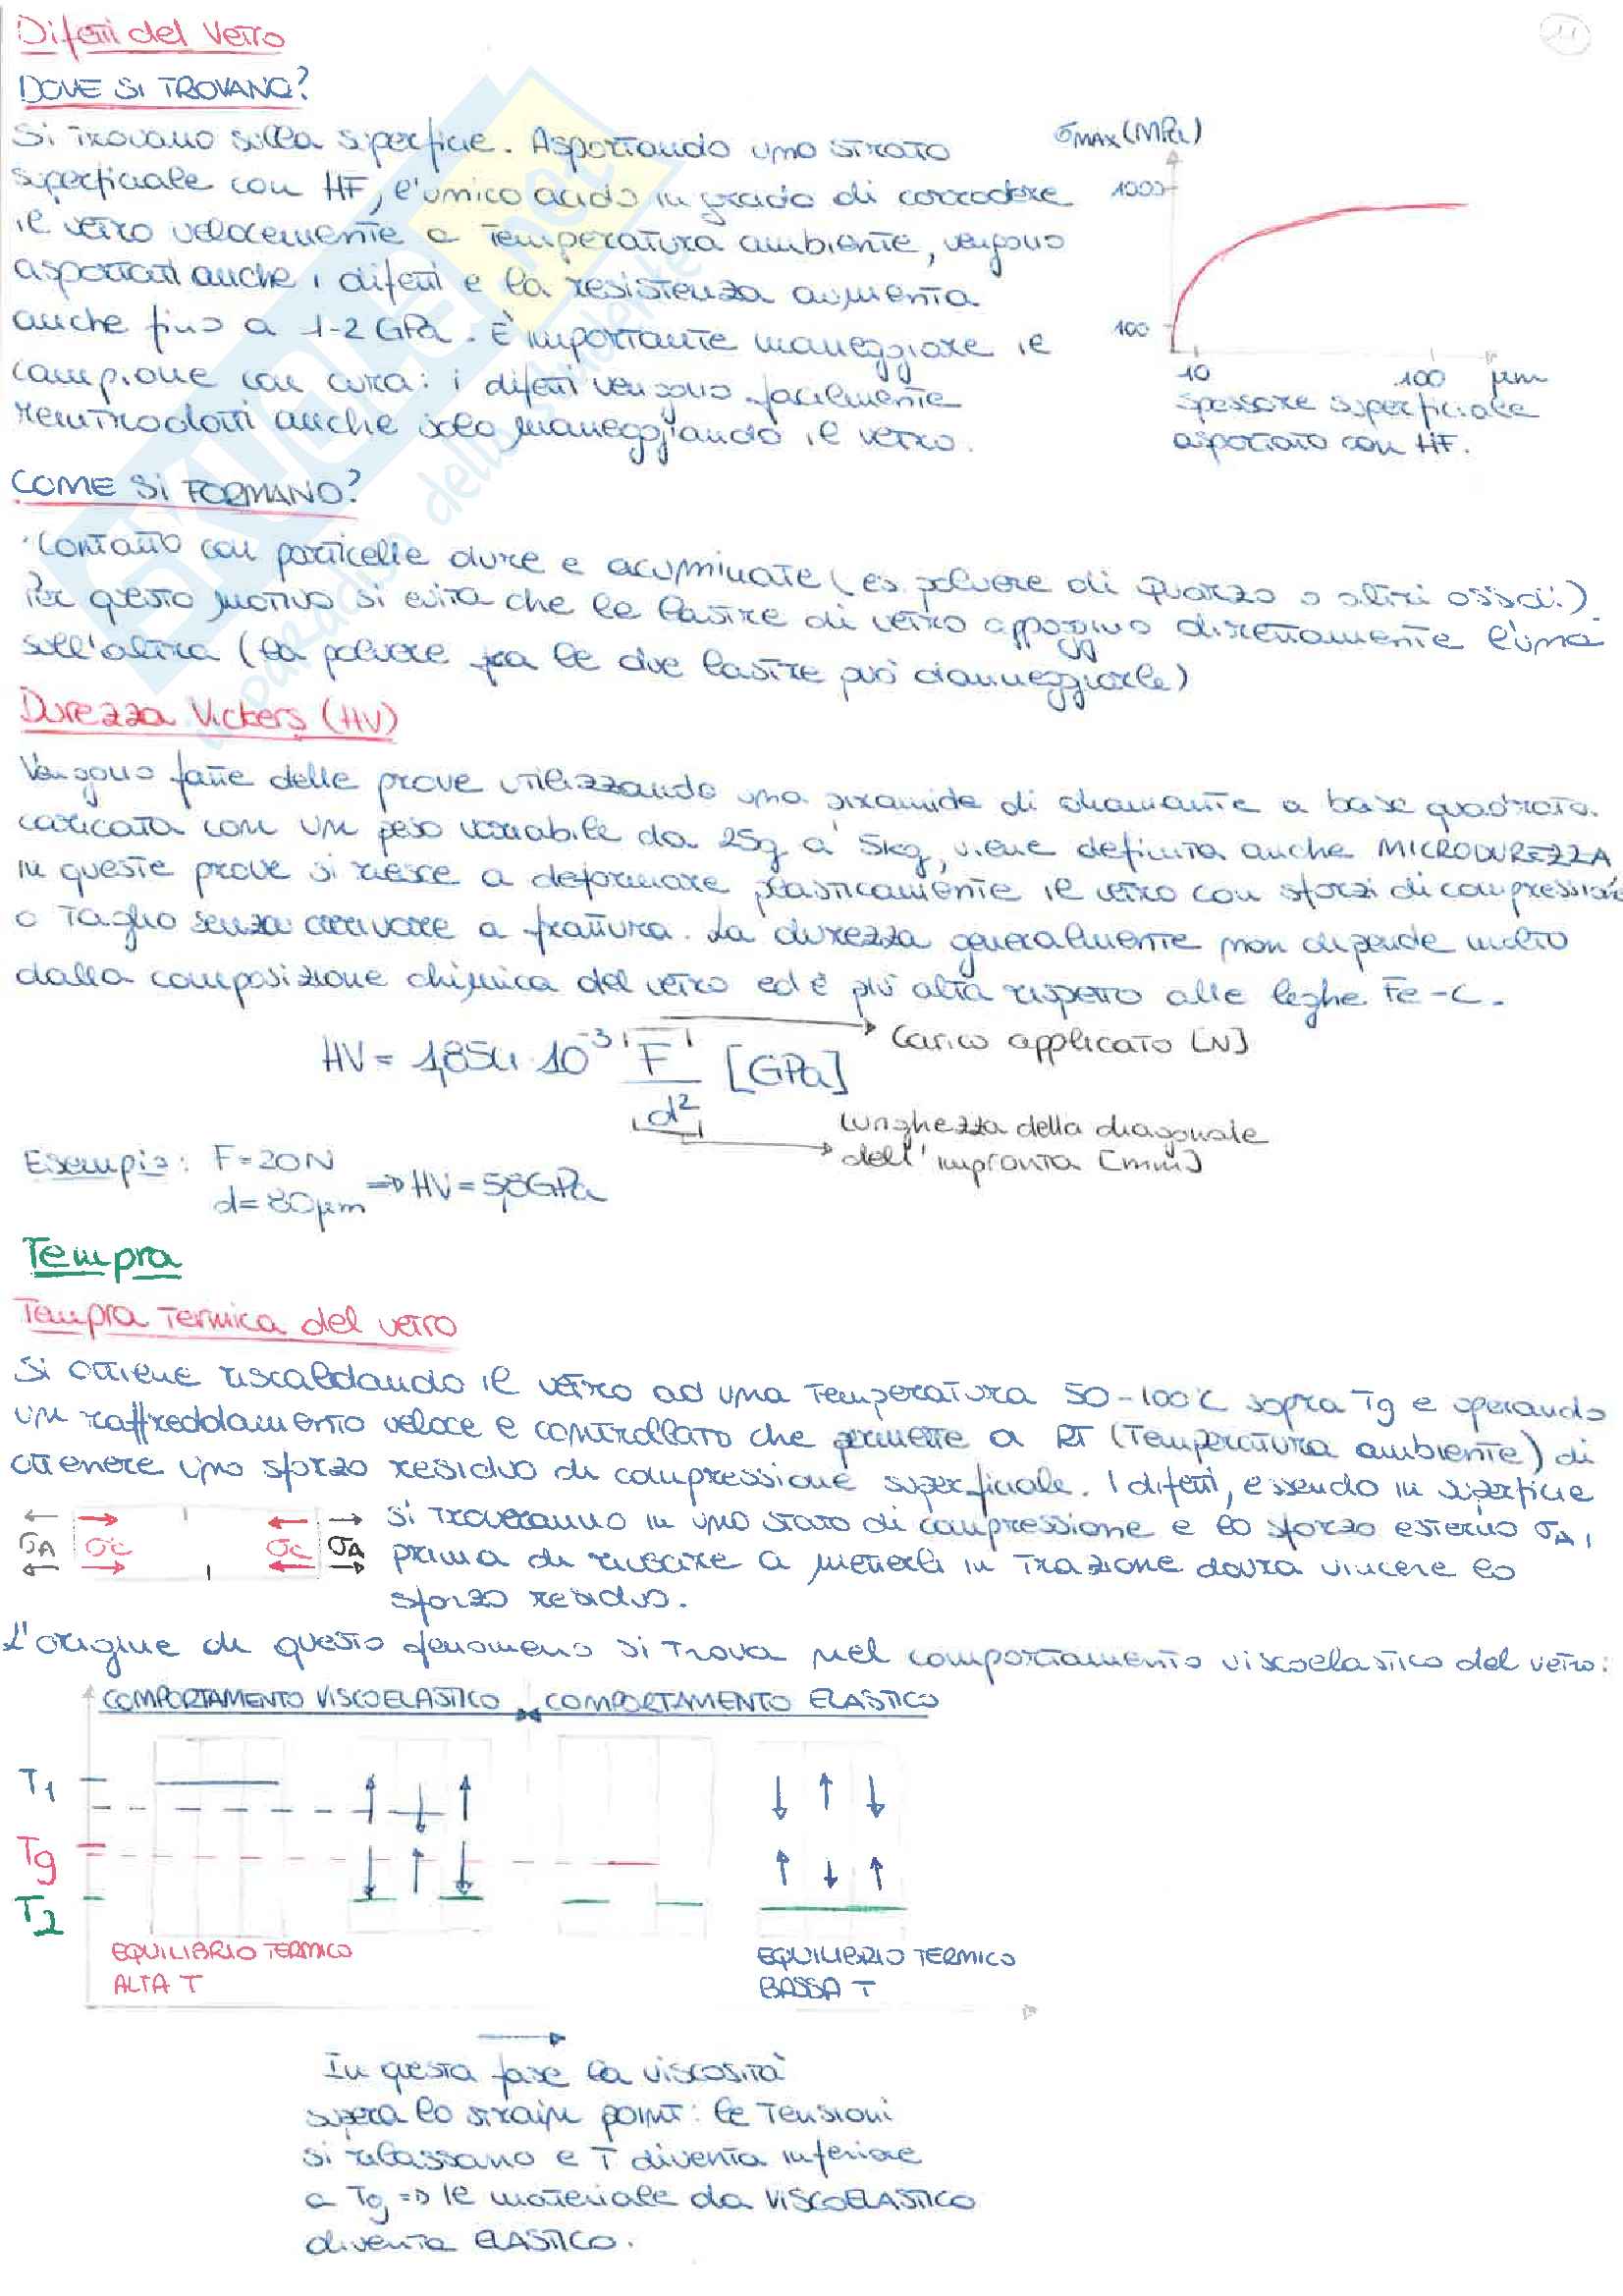 Difetti del Vetro
21
DOVE SI TROVANO?
Si trovano sulla superficie. Asportando uno strato
superficiale con HF, l'unico acido in grado di corrodere
il vetro velocemente a temperatura ambiente, vengono
asportati anche i difetti e la resistenza aumenta
anche fino a 1-2 GPa. È importante maneggiare il
campione con cura: i difetti vengono facilmente
reintrodotti anche solo maneggiando il vetro.
σMAX (MPa)
1000
100
10 100 μm
Spessore superficiale
asportato con HF.
COME SI FORMANO?
Contatto con particelle dure e acuminate (es. polvere di quarzo o altri ossidi).
Per questo motivo si evita che le lastre di vetro appoggino direttamente l'una
sull'altra (la polvere fra le due lastre può danneggiarle)
Durezza Vickers (HV)
Vengono fatte delle prove utilizzando una piramide di diamante a base quadrata.
caricata con un peso variabile da 25g a 5kg, viene definita anche MICRODUREZZA
In queste prove si riesce a deformare plasticamente il vetro con sforzi di compressione
o taglio senza arrivare a frattura. La durezza generalmente non dipende molto
dalla composizione chimica del vetro ed è più alta rispetto alle leghe Fe-C.
HV = 1,854 · 10⁻³ F/d² [GPa]
Carico applicato [N]
Lunghezza della diagonale
dell'impronta [mm]
Esempio: F=20N
d=80μm ⇒ HV=5,8GPa
Tempra
Tempra termica del vetro
Si ottiene riscaldando il vetro ad una temperatura 50-100°C sopra Tg e operando
un raffreddamento veloce e controllato che permette a RT (Temperatura ambiente) di
ottenere uno sforzo residuo di compressione superficiale. I difetti, essendo in superficie
si troveranno in uno stato di compressione e lo sforzo esterno σA,
prima di riuscire a metterli in trazione dovrà vincere lo
sforzo residuo.
σA σc σc σA
L'origine di questo fenomeno si trova nel comportamento viscoelastico del vetro:
COMPORTAMENTO VISCOELASTICO COMPORTAMENTO ELASTICO
T1
Tg
T2
EQUILIBRIO TERMICO
ALTA T
EQUILIBRIO TERMICO
BASSA T
In questa fase la viscosità
supera lo strain point: le tensioni
si rilassano e T diventa inferiore
a Tg ⇒ il materiale da VISCOELASTICO
diventa ELASTICO.